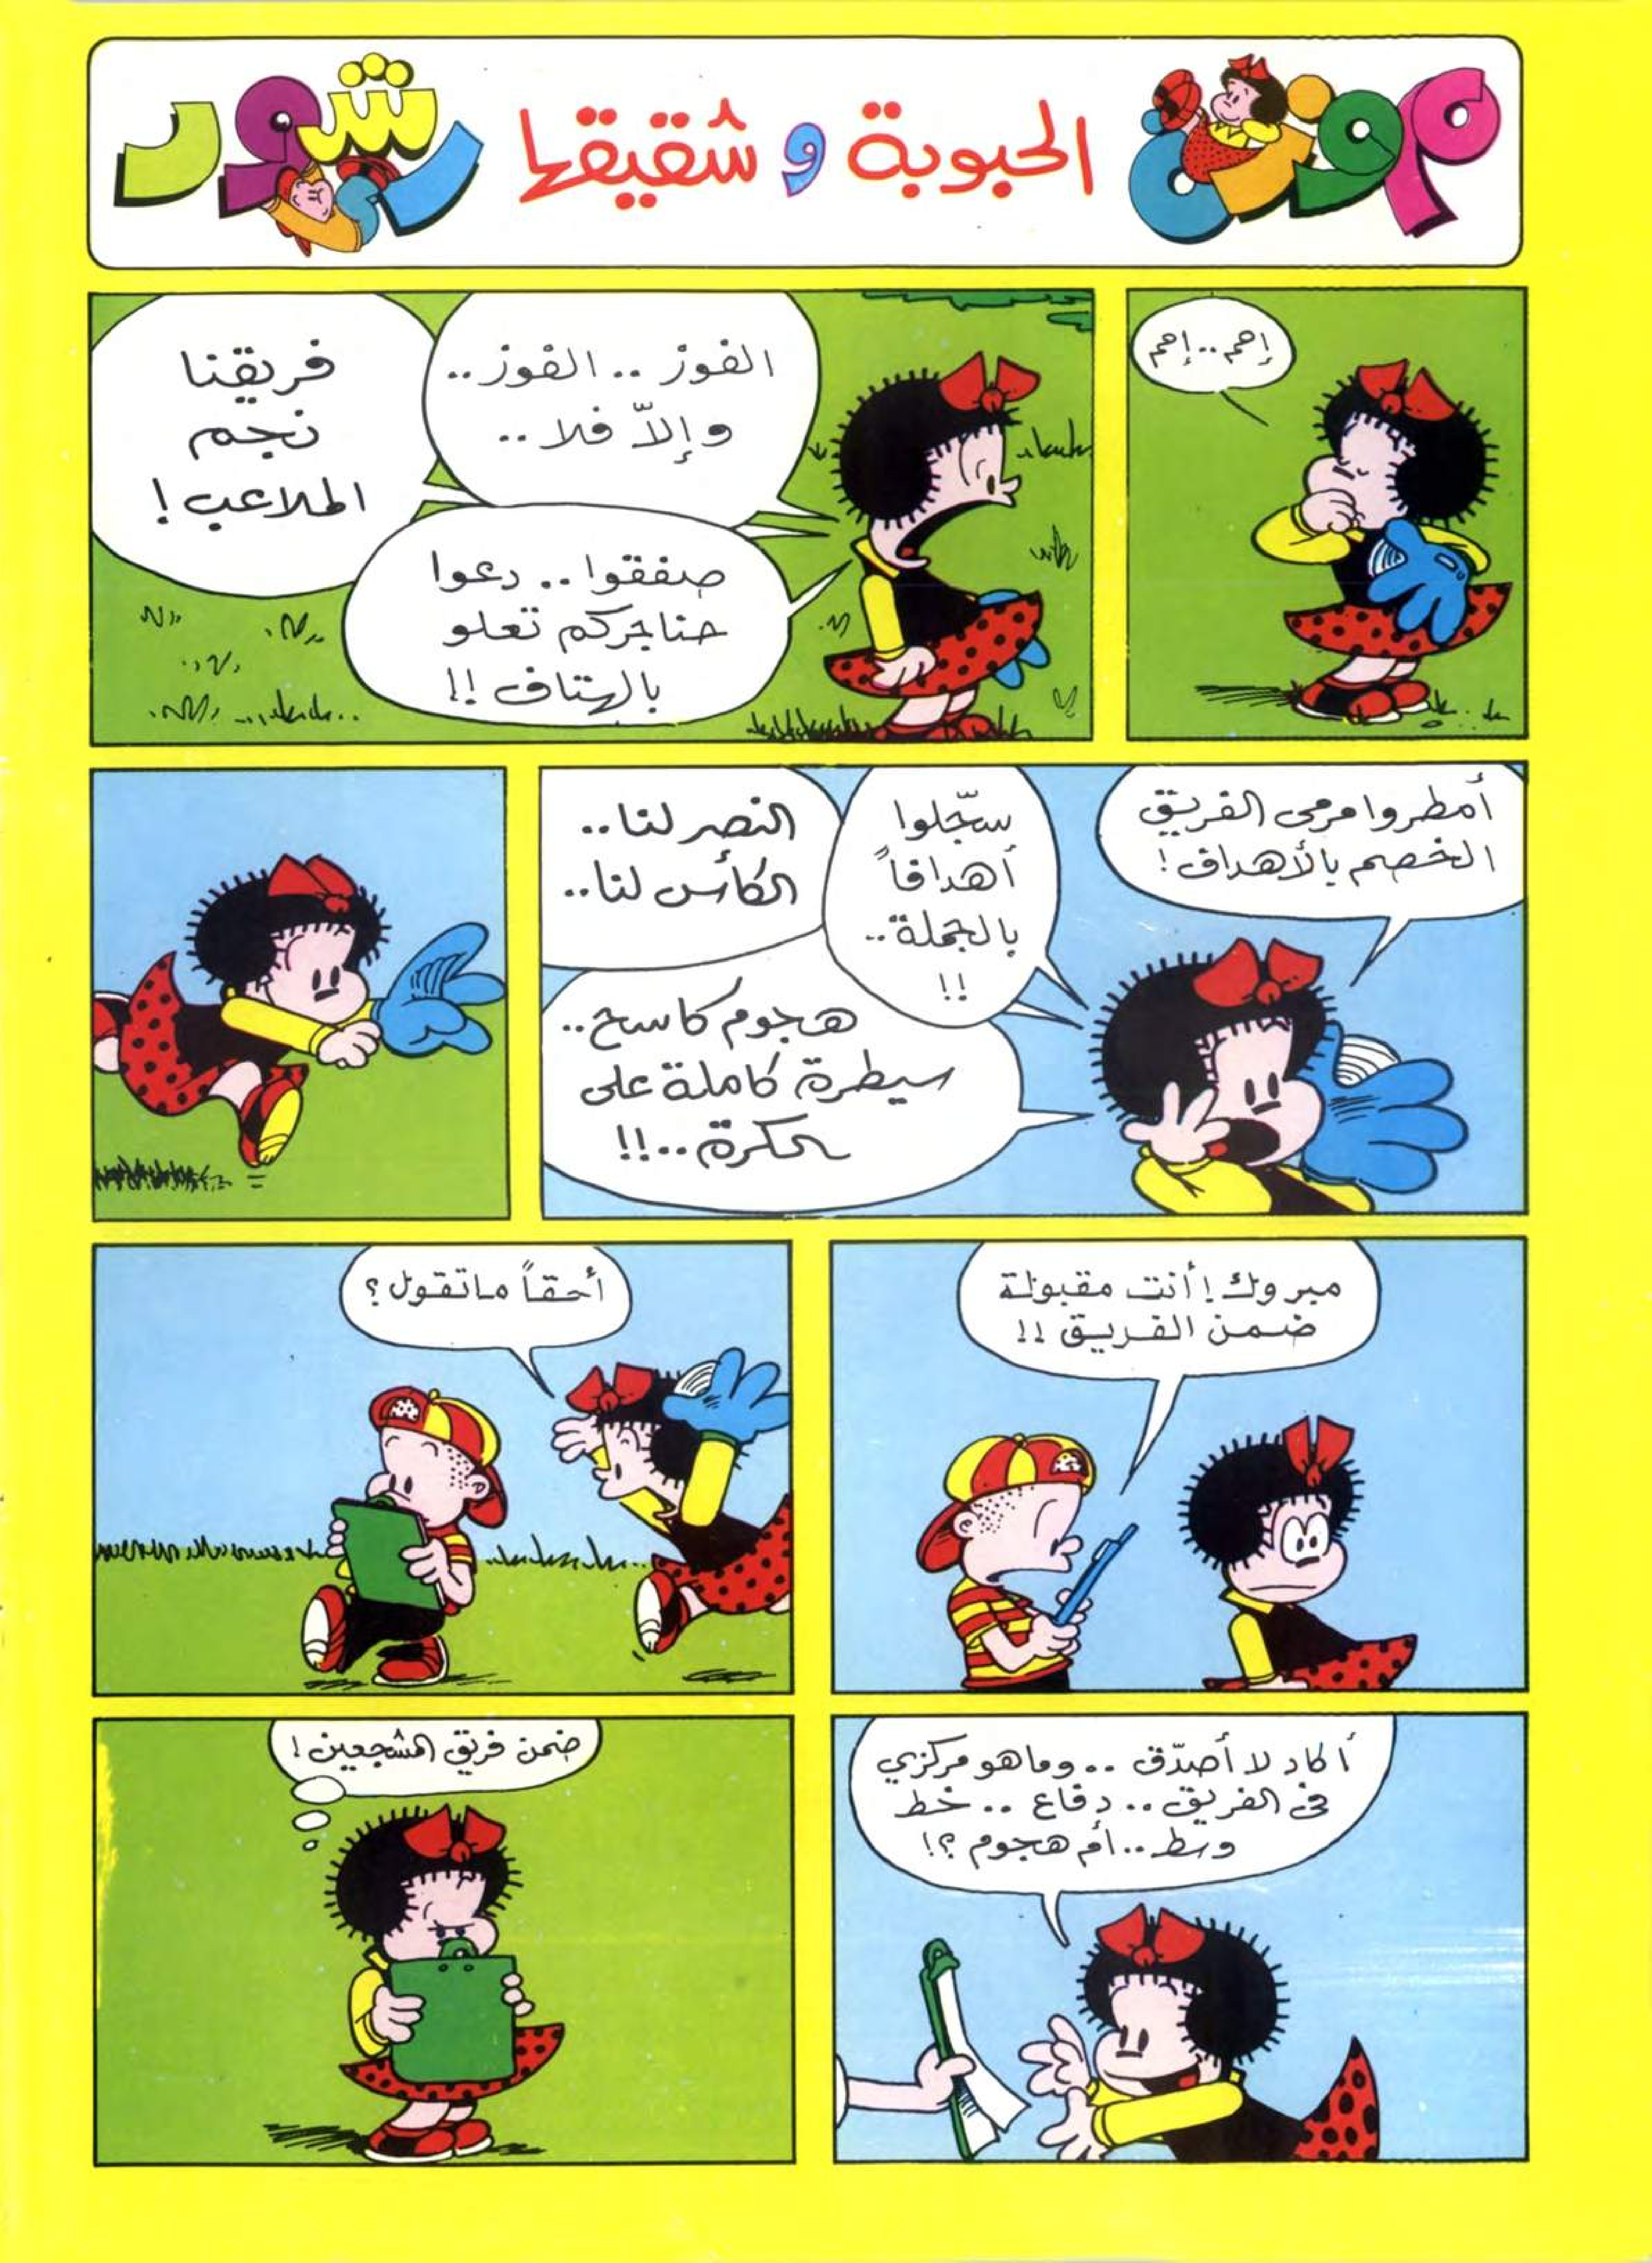 موزة
الحبوبة و شقيقها
رشود
إحم..إحم
الفوز .. الفوز ..
وإلاّ فلا ..
فريقنا
نجم
الملاعب !
صفقوا .. دعوا
حناجركم تعلو
بالهتاف !!
أمطروا مرمى الفريق
الخصم بالأهداف !
سجّلوا
أهدافاً
بالجملة ..
!!
النصر لنا ..
الكأس لنا ..
هجوم كاسح ..
سيطرة كاملة على
الكرة ..!!
مبروك ! أنت مقبولة
ضمن الفريق !!
أحقاً ماتقول ؟
أكاد لا أصدّق .. وماهو مركزي
في الفريق .. دفاع .. خط
وسط .. أم هجوم ؟!
ضمن فريق المشجعين !